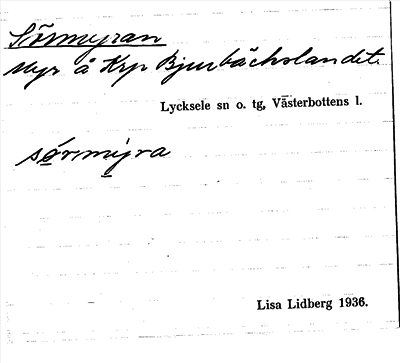 Sörmyran
Myr å Krp Bjurbäckslandet.
Lycksele sn o. tg, Västerbottens l.
sørmy̆ra
Lisa Lidberg 1936.